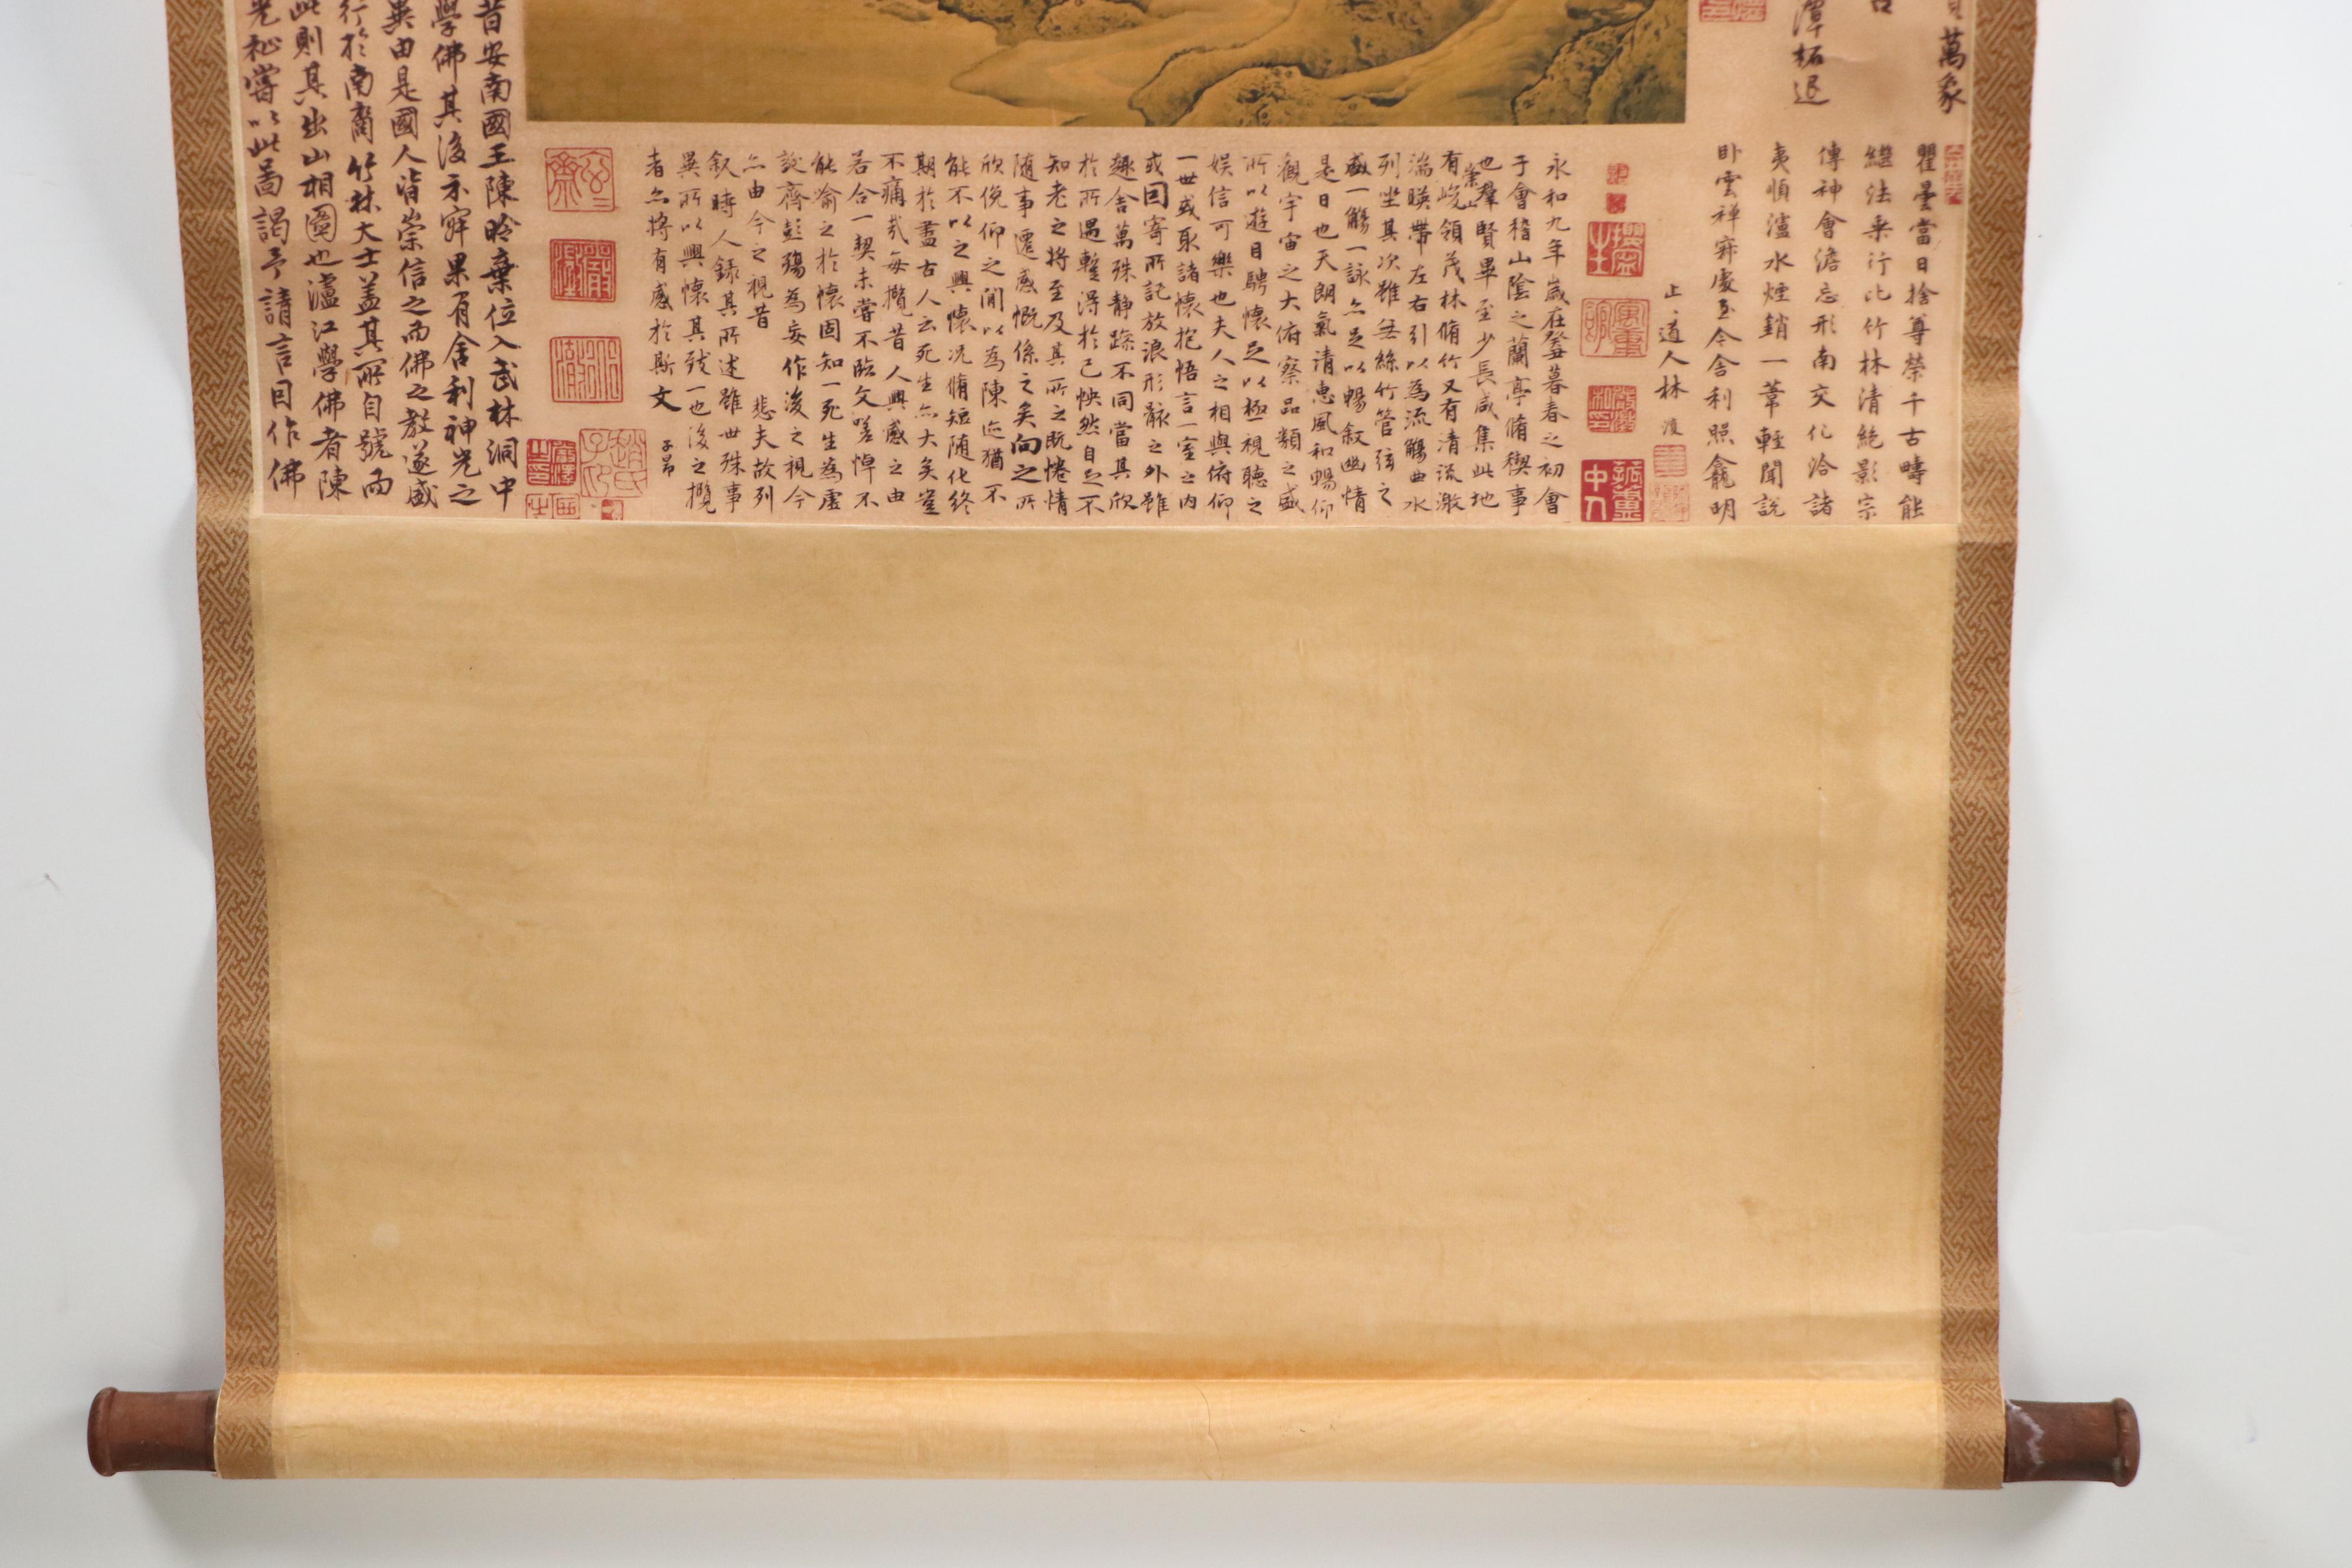 萬象
潭柘退
瞿曇當日捨尊榮千古疇能
繼法乘行比竹林清絕影宗
傳神會澹忘形南交化洽諸
夷順瀘水煙銷一葦輕聞說
卧雲禅寂處至今舍利照龕明
上道人林復
永和九年歲在癸丑暮春之初會
于會稽山陰之蘭亭脩稧事
也羣賢畢至少長咸集此地
崇山
有峻領茂林脩竹又有清流激
湍暎帶左右引以為流觴曲水
列坐其次雖無絲竹管弦之
盛一觴一詠亦足以暢敘幽情
是日也天朗氣清惠風和暢仰
觀宇宙之大俯察品類之盛
所以遊目騁懷足以極視聽之
娛信可樂也夫人之相與俯仰
一世或取諸懷抱悟言一室之內
或因寄所託放浪形骸之外雖
趣舍萬殊靜躁不同當其欣
於所遇蹔得於己怏然自足不
知老之將至及其所之既惓情
隨事遷感慨係之矣向之所
欣俛仰之閒以為陳迹猶不
能不以之興懷況脩短隨化終
期於盡古人云死生亦大矣豈
不痛哉每攬昔人興感之由
若合一契未嘗不臨文嗟悼不
能喻之於懷固知一死生為虛
誕齊彭殤為妄作後之視今
亦由今之視昔 悲夫故列
敘時人錄其所述雖世殊事
異所以興懷其致一也後之攬
者亦將有感於斯文
子昂
昔安南國王陳昑棄位入武林洞中
學佛其後示寂果有舍利神光之
異由是國人皆崇信之而佛之教遂盛
行於南裔竹林大士盖其所自號而
此則其出山相圖也瀘江學佛者陳
光祉嘗以此啚謁予請言因作佛